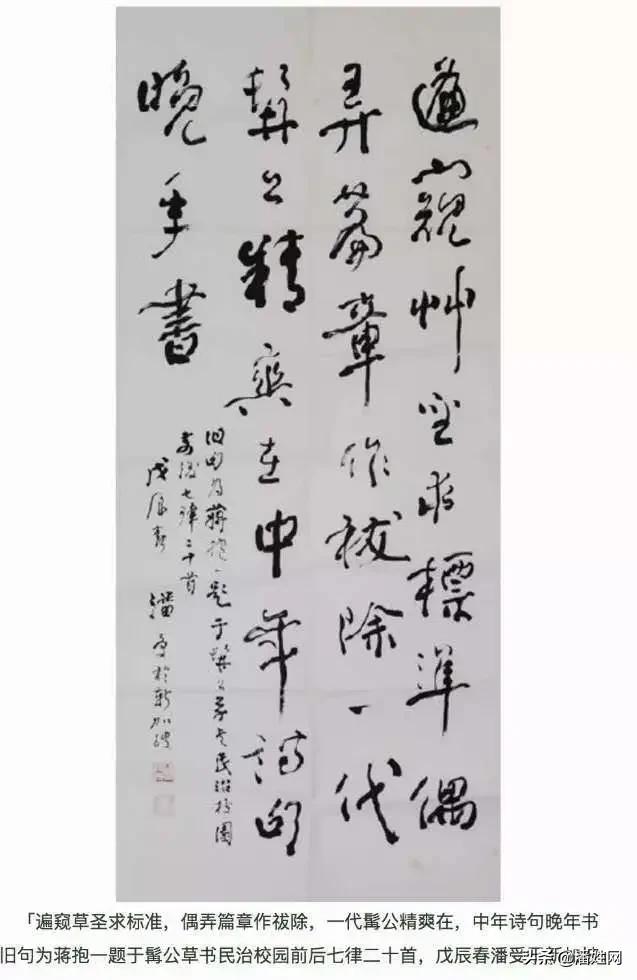 遍窺艸聖求標準偶
弄篇章作祓除一代
髯公精爽在中年詩句
晚年書
旧句為蔣抱一題于髯公草書民治校園
前後七律二十首
戊辰春 潘受於新加坡
「遍窥草圣求标准，偶弄篇章作祓除，一代髯公精爽在，中年诗句晚年书
旧句为蒋抱一题于髯公草书民治校园前后七律二十首，戊辰春潘受于新加坡
头条@潘姓网